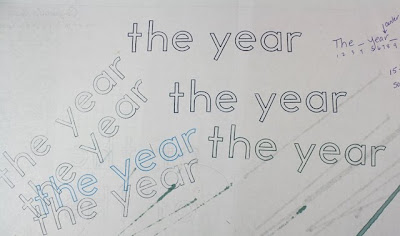 the year
The _ year_
the year
the year
the year
the year
the year
the year